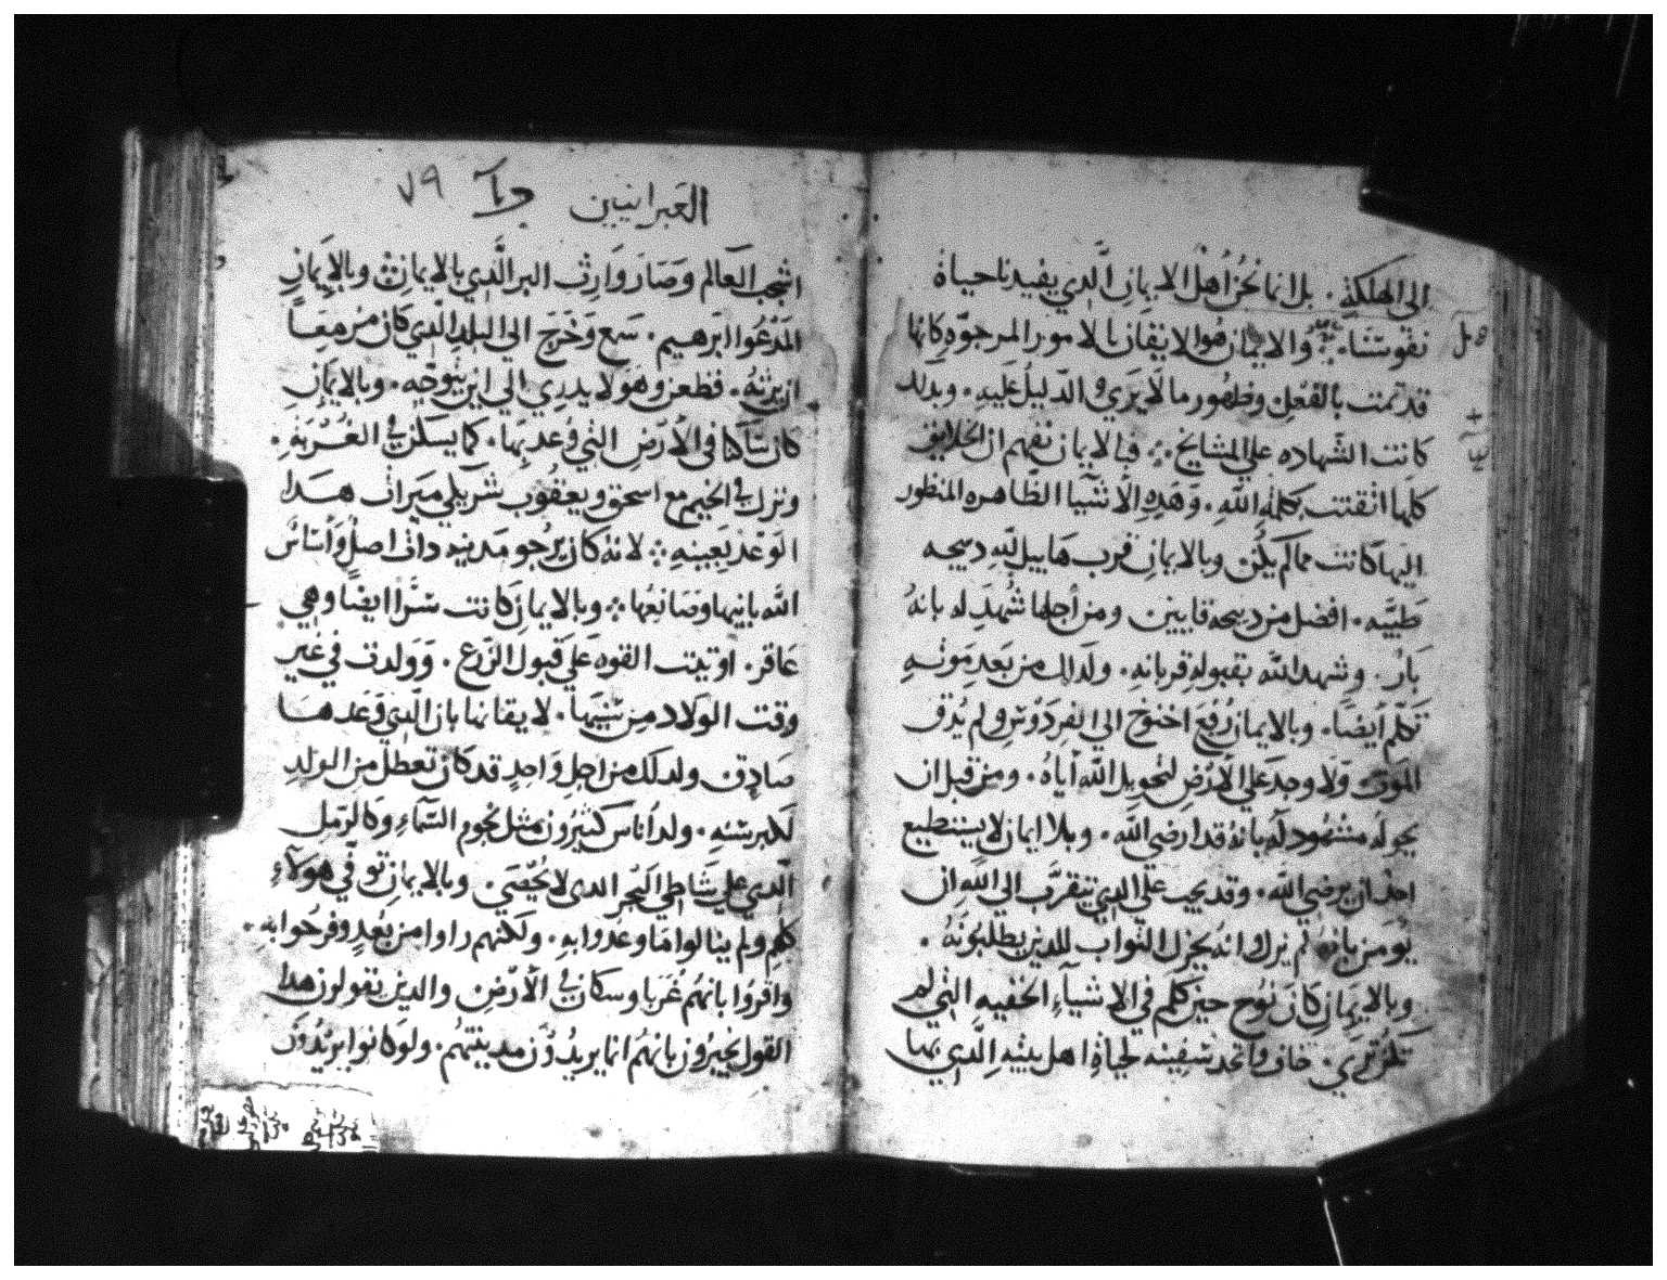 الى الهلكة. بل انما نحن أهل الايمان الذي يفيدنا حياة
نفوسنا. والايمان هوا الايقان بالامور المرجوّه كانها
قد تمت بالفعل وظهور ما لا يرى و الدليل عليه. وبذلك
كانت الشهاده علي المشايخ. فبالايمان نفهم ان الخلايق
كلها اتقنت بكلمة الله. وهذه الاشيا الظاهره المنظور
اليها كانت مما لم يكن وبالايمان قرب هابيل لله دبيحه
طيبه. افضل من دبيحة قايين ومن أجلها شُهد له بانهُ
بار. وشهد الله بقبوله قربانه. ولدلك من بعد موته
تكلم أيضًا. وبالايمان رُفع اخنوخ الي الفردوس ولم يُدق
الموت ولا وجد علي الارض لتحويل الله أياهُ. ومن قبل ان
يحوله مشهود له بانهُ قد ارضي الله. وبلا ايمان لا يستطيع
احد ان يرضي الله. وقد يجب علي الذي يتقرّب الي الله ان
يومن بانهُ لم يزل وانهُ يجزل الثواب للدين يطلبونهُ.
وبالايمان كان نوح حين كلم في الاشياء الخفيه التي لم
تكن تري. خاف واتخد سفينه لحياة اهل بيته الذي بها
العبرانيين ٧٩
اشجب العالم وصار وارث البر الذي بالايمان وبالايمان
المدعوا ابرهيم. سمع وخرج الي البلد الذي كان مزمعًا
ان يرثهُ. فظعن وهو لا يدري الي اين يتوجه. وبالايمان
كان ساكنا في الارض التي وُعد بها. كما يسكن في الغُربة.
ونزل في الخيم مع اسحق ويعقوب شريكي ميراث هدا
الوعد بعينه. لانه كان يرجو مدينه داث اصل وأساس
الله بانيها وصانعها. وبالايمان كانت سرّا ايضًا وهي
عاقر. اوتيت القوه علي قبول الزرع. وولدت في غير
وقت الولاد من سنيها. لايقانها بان الذي وعدها
صادق. ولدلك من اجل واحد قد كان تعطل من الولد
لكبر سنه. ولد أناس كثيرون مثل نجوم السماء وكالرمل
الذي علي شاطي البحر الدى لا يُحصي. وبالايمان توفي هولاء
كلهم ولم ينالوا ما وعدوا به. ولكنهم راوا من بُعدٍ وفرحوا به.
واقروا بانهم غربا وسكان في الارض والدين يقولون هدا
القول يخبرون بانهم انما يريدون مدينتهم. ولو كانوا يريدون